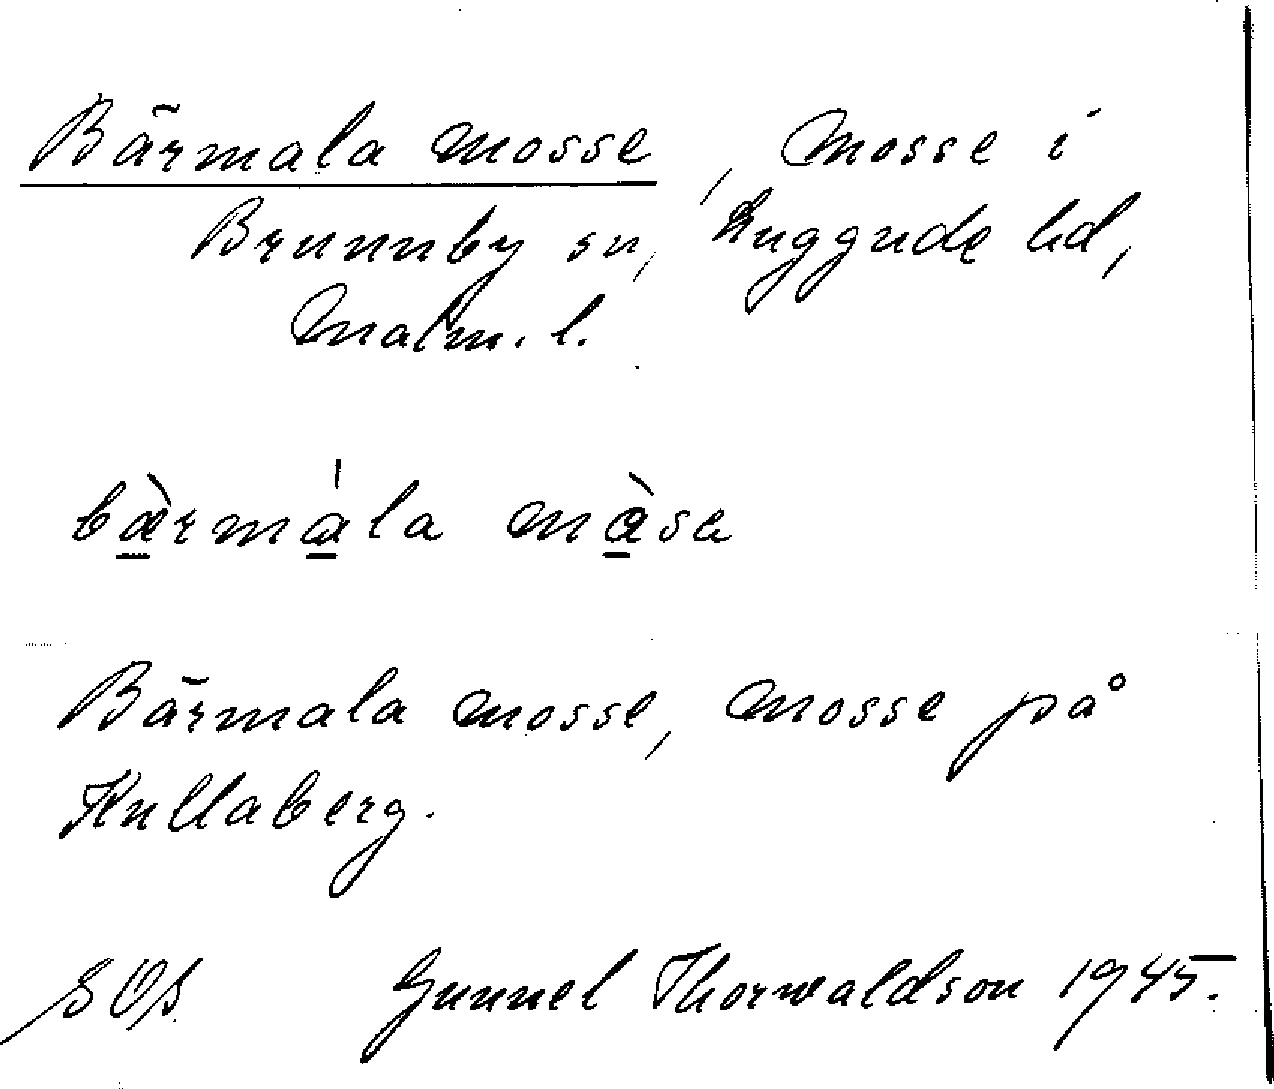 Bärmala mosse, mosse i
Brunnby sn, Luggude hd,
Malm. l.
bæ̀rmála màsa
Bärmala mosse, mosse på
Kullaberg.
Gunnel Thorwaldson 1945.